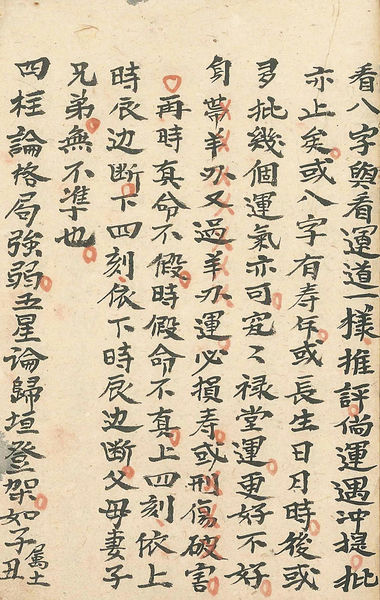 看八字與看運道一樣推評倘運遇冲提批
亦止矣或八字有寿年或長生日月時後或
多批幾個運氣亦可究〻禄堂運更好不好
身帶羊刃又過羊刃運必損寿或刑傷破害
再時真命不假時假命不真上四刻依上
時辰边断下四刻依下時辰边断父母妻子
兄弟無不准也
四柱論格局強弱五星論歸垣登架如子丑属土